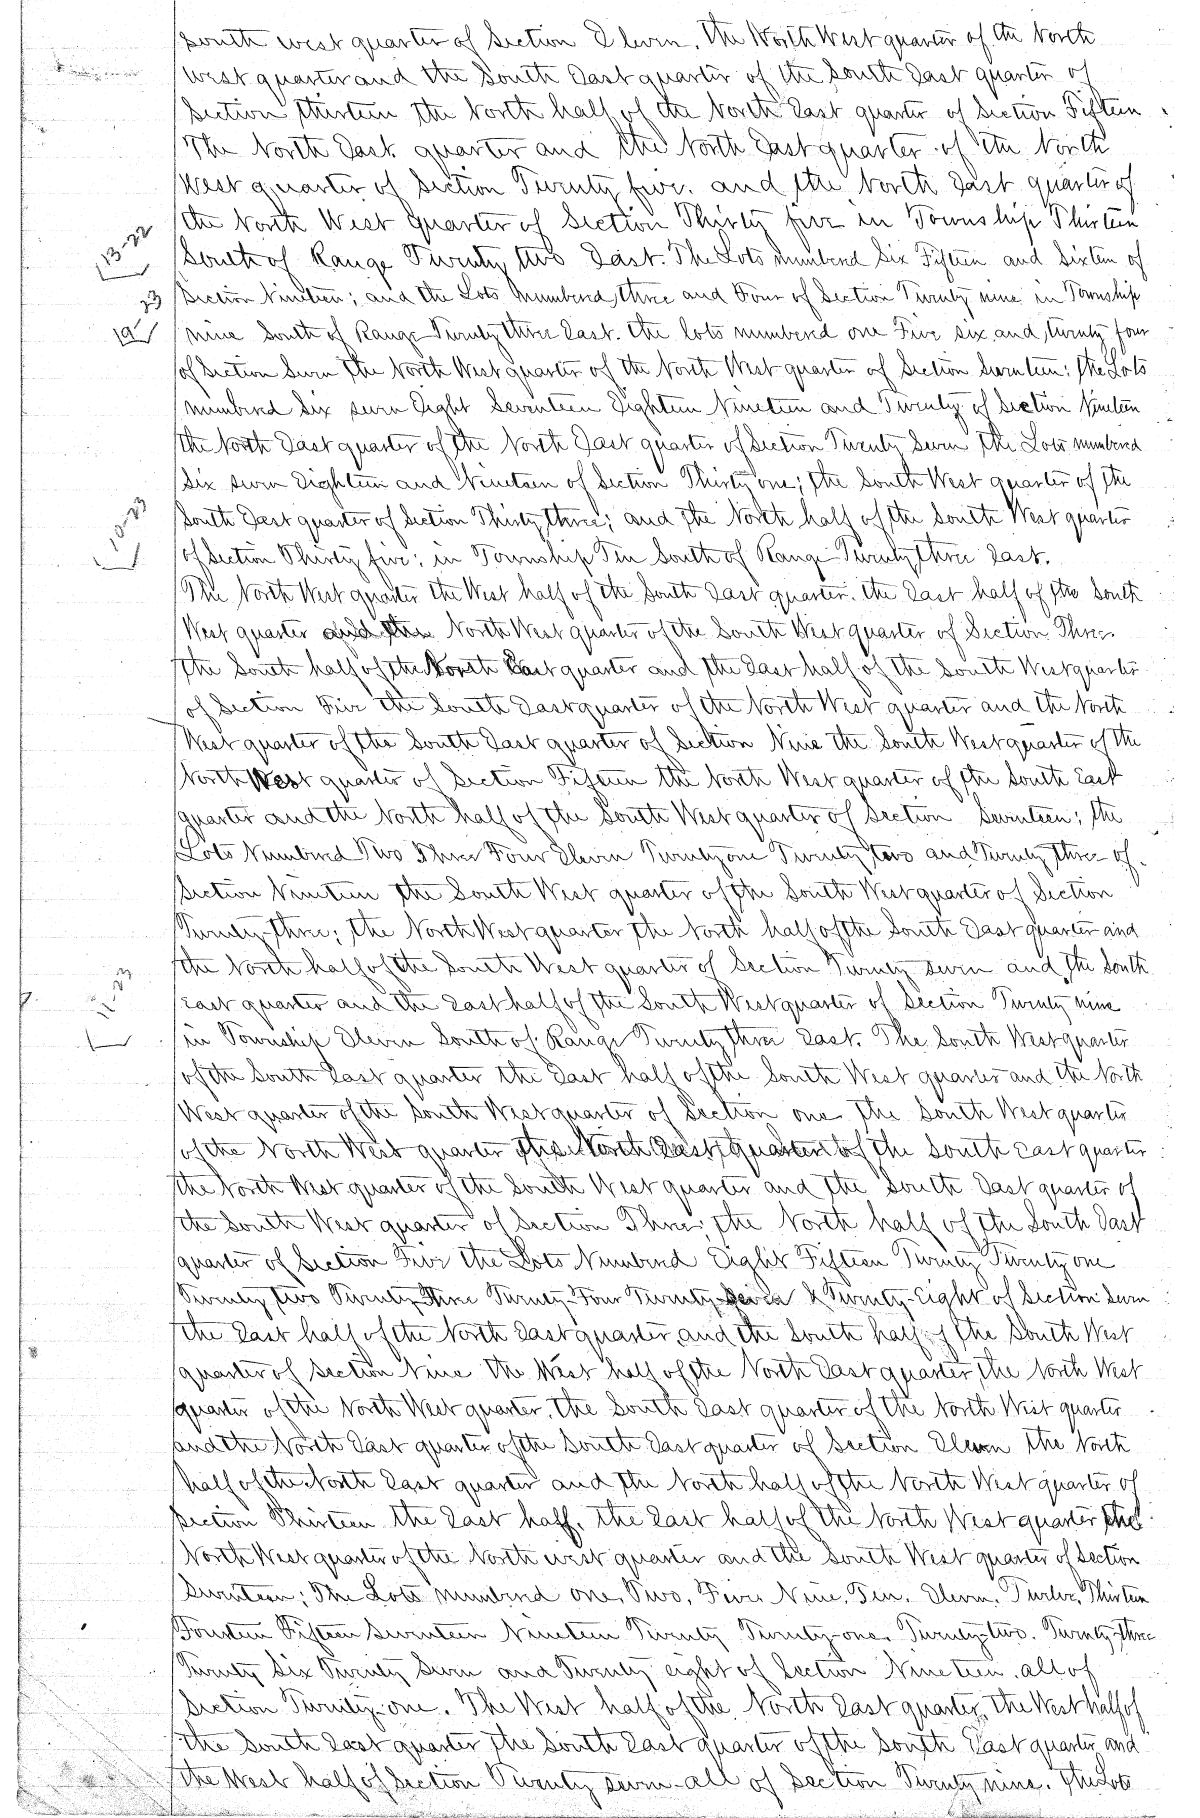 south west quarter of Section Eleven, The North West quarter of the North
West quarter and the South East quarter of the South East quarter of
Section thirteen the North half of the North East quarter of Section Fifteen
The North East quarter and the North East quarter of the North
West quarter of Section Twenty five. and the North East quarter of
the North West quarter of Section Thirty five in Township Thirteen
13-22
South of Range Twenty two East. The Lots numbered Six Fifteen and Sixteen of
23
Section Nineteen; and the Lots numbered three and Four of Section Twenty nine in Township
19
nine South of Range Twenty three East. the lots numbered one Five six and twenty four
of Section Seven The North West quarter of the North West quarter of Section Seventeen; the Lots
numbered Six seven Eight Seventeen Eighteen Nineteen and Twenty of Section Nineteen
the North East quarter of the North East quarter of Section Twenty Seven The Lots numbered
Six seven Eighteen and Nineteen of Section Thirty one; the South West quarter of the
South East quarter of Section Thirty three; and the North half of the South West quarter
10-23
of Section Thirty five; in Township Ten South of Range Twenty three East.
The North West quarter the West half of the South East quarter. the East half of the South
West quarter and the North West quarter of the South West quarter of Section Three
the South half of the North East quarter and the East half of the South West quarter
of Section Five the South East quarter of the North West quarter and the North
West quarter of the South East quarter of Section Nine the South West quarter of the
North West quarter of Section Fifteen the North West quarter of the South East
quarter and the North half of the South West quarter of Section Seventeen; the
Lots Numbered Two Three Four Eleven Twenty one Twenty two and Twenty three of
Section Nineteen the South West quarter of the South West quarter of Section
Twenty-three; the North West quarter the North half of the South East quarter and
the North half of the South West quarter of Section Twenty seven and the South
11-23
East quarter and the East half of the South West quarter of Section Twenty nine
in Township Eleven South of Range Twenty three East. The South West quarter
of the South East quarter the East half of the South West quarter and the North
West quarter of the South West quarter of Section one The South West quarter
of the North West quarter the North East quarter of the South East quarter
the North West quarter of the South West quarter and the South East quarter of
the South West quarter of Section Three; the North half of the South East
quarter of Section Five the Lots Numbered Eight Fifteen Twenty Twenty one
Twenty two Twenty-Three Twenty-Four Twenty-Seven & Twenty-Eight of Section Seven
the East half of the North East quarter, and the South half of the South West
quarter of Section Nine the West half of the North East quarter, the North West
quarter of the North West quarter. The South East quarter of the North West quarter
and the North East quarter of the South East quarter of Section Eleven the North
half of the North East quarter and the North half of the North West quarter of
Section Thirteen the East half, the East half of the North West quarter the
North West quarter of the North west quarter and the South West quarter of Section
Seventeen; The Lots numbered one, Two, Five Nine, Ten, Eleven, Twelve, Thirteen
Fourteen Fifteen Seventeen Nineteen Twenty Twenty-one, Twenty-two. Twenty-three
Twenty Six Twenty Seven and Twenty eight of Section Nineteen. all of
Section Twenty-one. The West half of the North East quarter, the West half of
the South East quarter the South East quarter of the South East quarter and
the West half of Section Twenty seven all of Section Twenty nine. The Lots